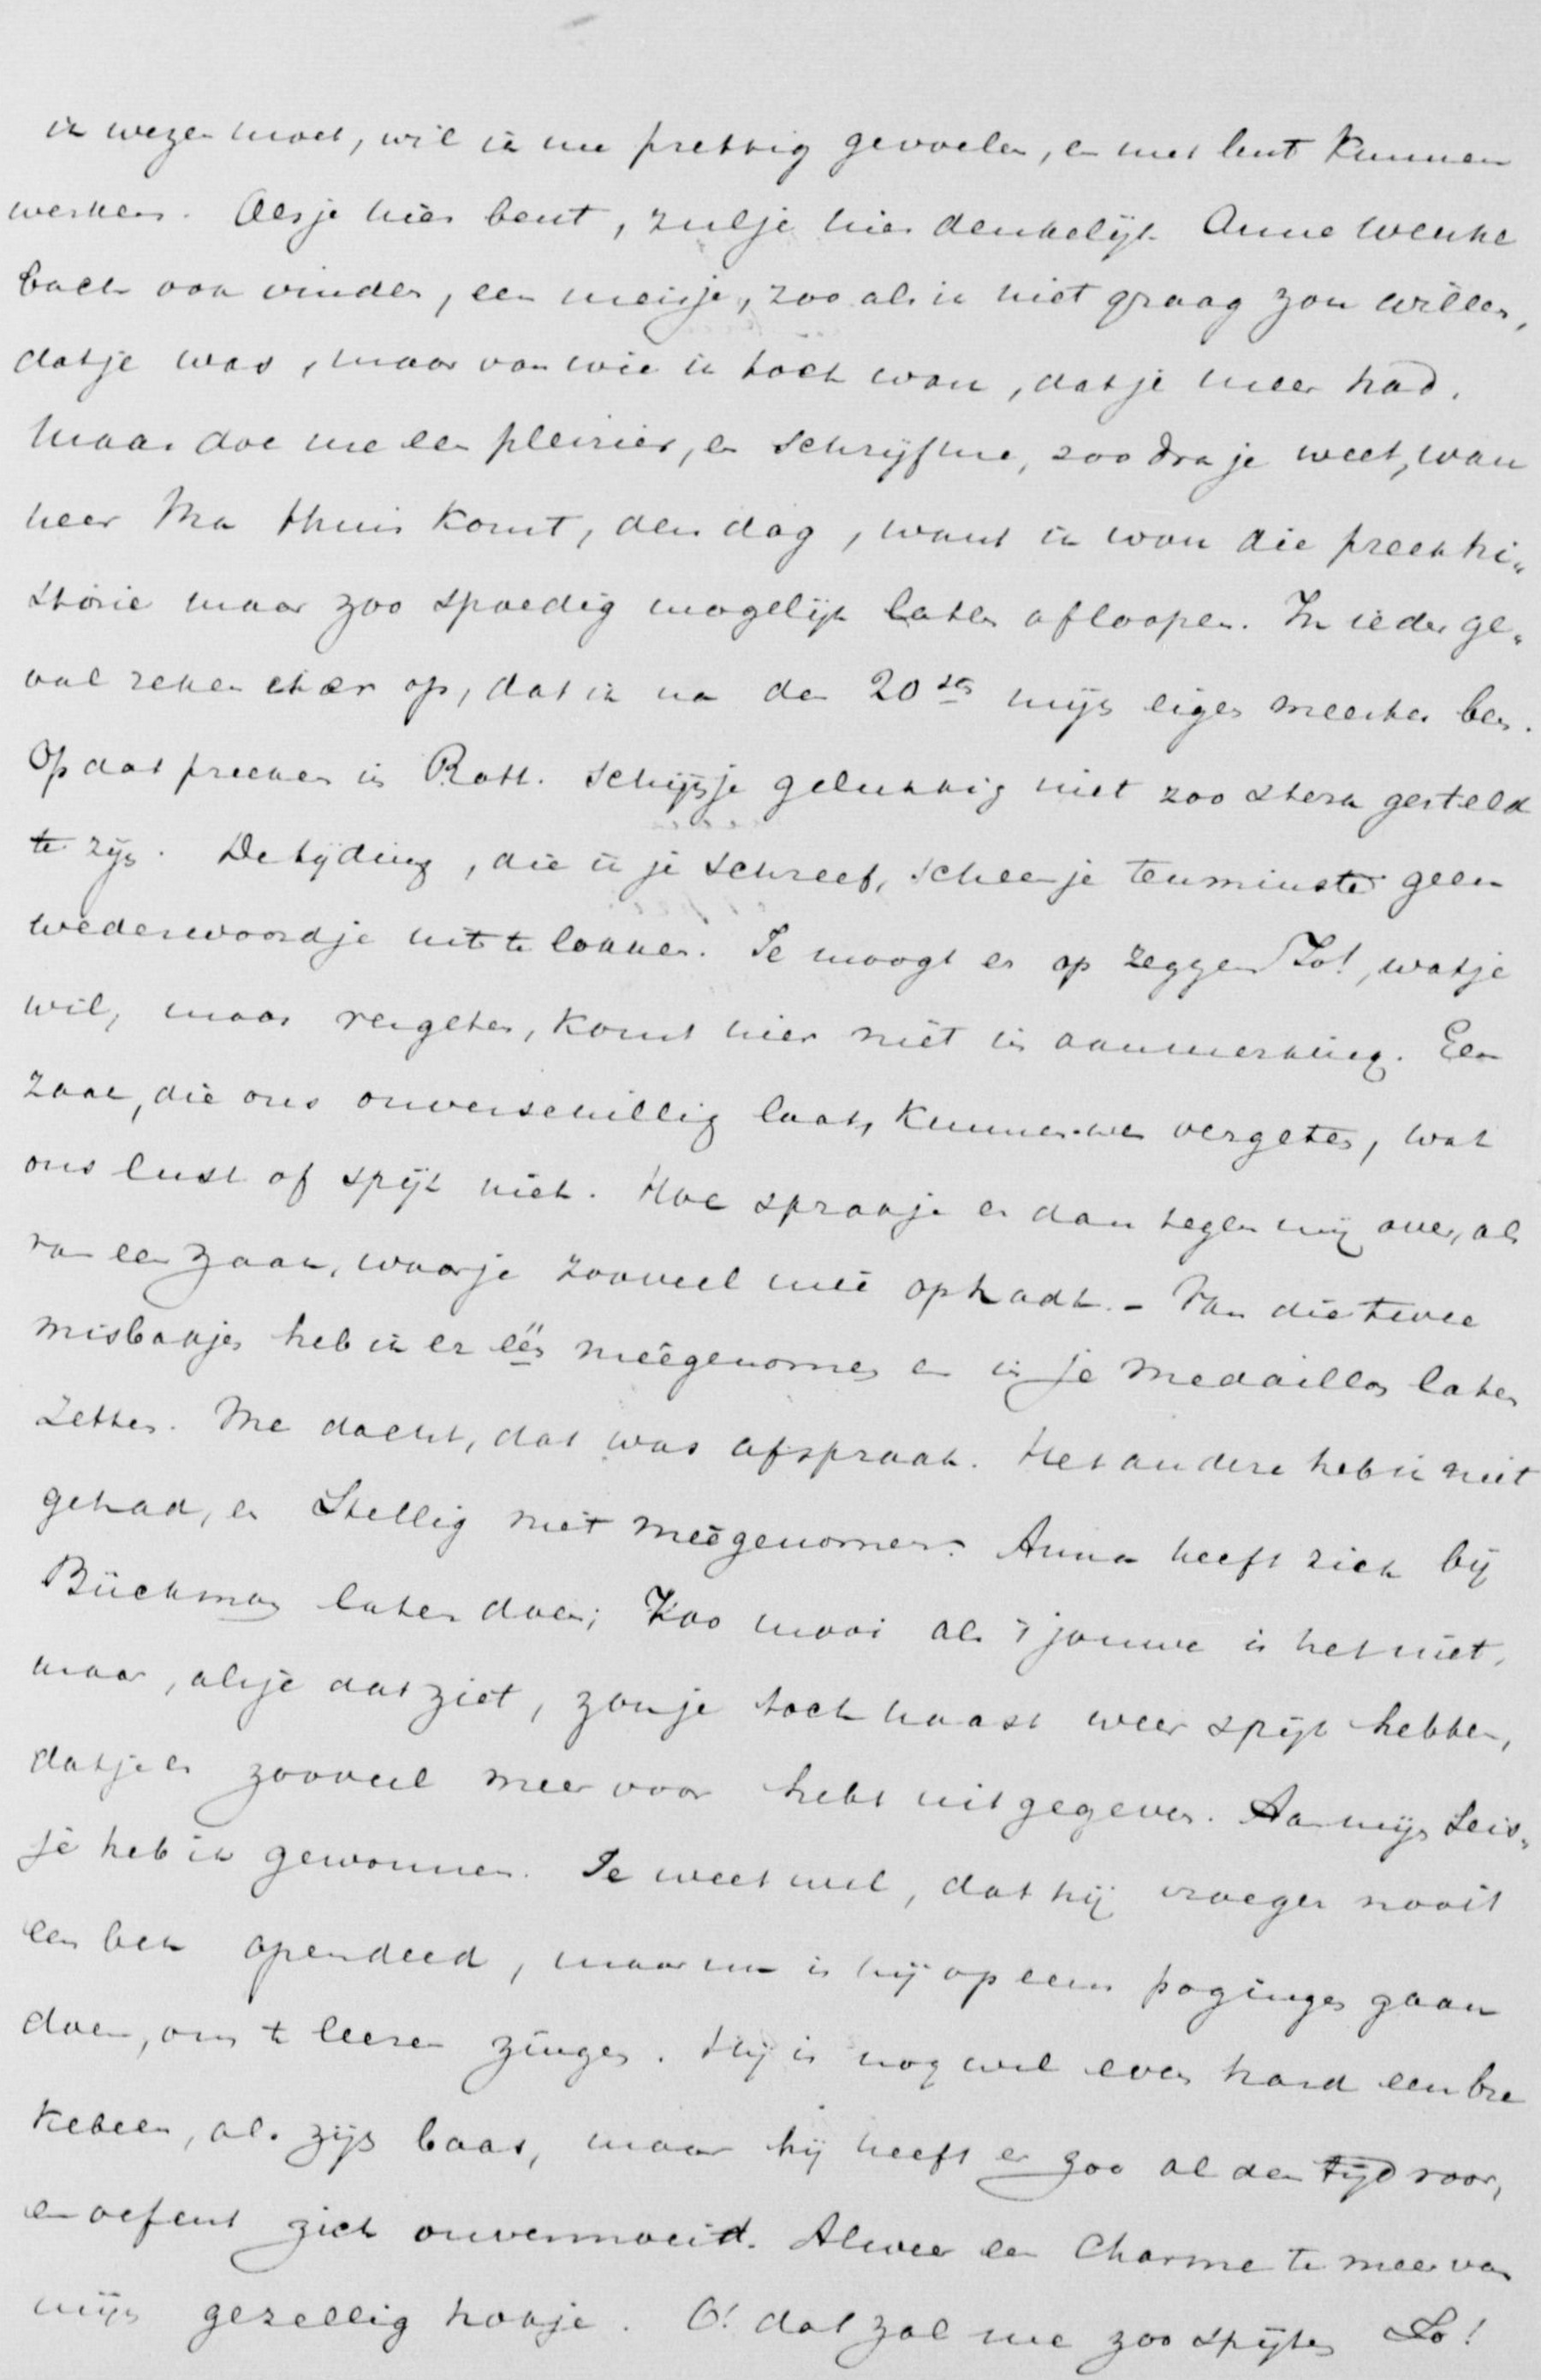 ik wezen moet, wil ik me prettig gevoelen, en met lust kunnen
werken. Als je hier bent, zul je hier denkelijk Anne Wencke
bach ook vinden, een meisje, zoo als ik niet graag zou willen,
dat je was, maar van wie ik toch wou, dat je meer had.
Maar doe me een pleisier, en schrijf me, zoodra je weet, wan
neer Ma thuis komt, den dag, want ik wou die preekhi„
storie maar zoo spoedig mogelijk laten afloopen. In ieder ge„
val reken er op, dat ik na den 20sten mijn eigen meester ben.
Op dat preeken in Rott. schijn je gelukkig niet zoo sterk gesteld
te zijn. De tijding, die ik je schreef, scheen je tenminste geen
wederwoordje uit te lokken. Je moogt er op zeggen Jo!, wat je
wil, maar vergeten, komt hier niet in aanmerking. Een
zaak, die ons onverschillig laat, kunnen we vergeten, wat
ons lust of spijt niet. Hoe spraakje er dan tegen mij over, als
van een zaak, waar je zooveel mee ophadt. – Van die twee
misbakjes heb ik er één meêgenomen en in je medaillon laten
zetten. Me dacht, dat was afspraak. Het andere heb ik niet
gehad, en stellig niet meêgenomen. Anna heeft zich bij
Bückman laten doen; Zoo mooi als 't jouwe is het niet,
maar, als je dat ziet, zou je toch haast weer spijt hebben,
dat je er zooveel meer voor hebt uitgegeven. Aan mijn Seis„
je heb ik gewonnen. Je weet wel, dat hij vroeger nooit
een bek opendeed, maar nu is hij op eens pogingen gaan
doen, om te leeren zingen. Hij is nog wel even hard een bre
kebeen, als zijn baas, maar hij heeft er zoo al den tijd voor,
en oefent zich onvermoeid. Alweer een charme te meer van
mijn gezellig hokje. O! dat zal me zoo spijten Jo!